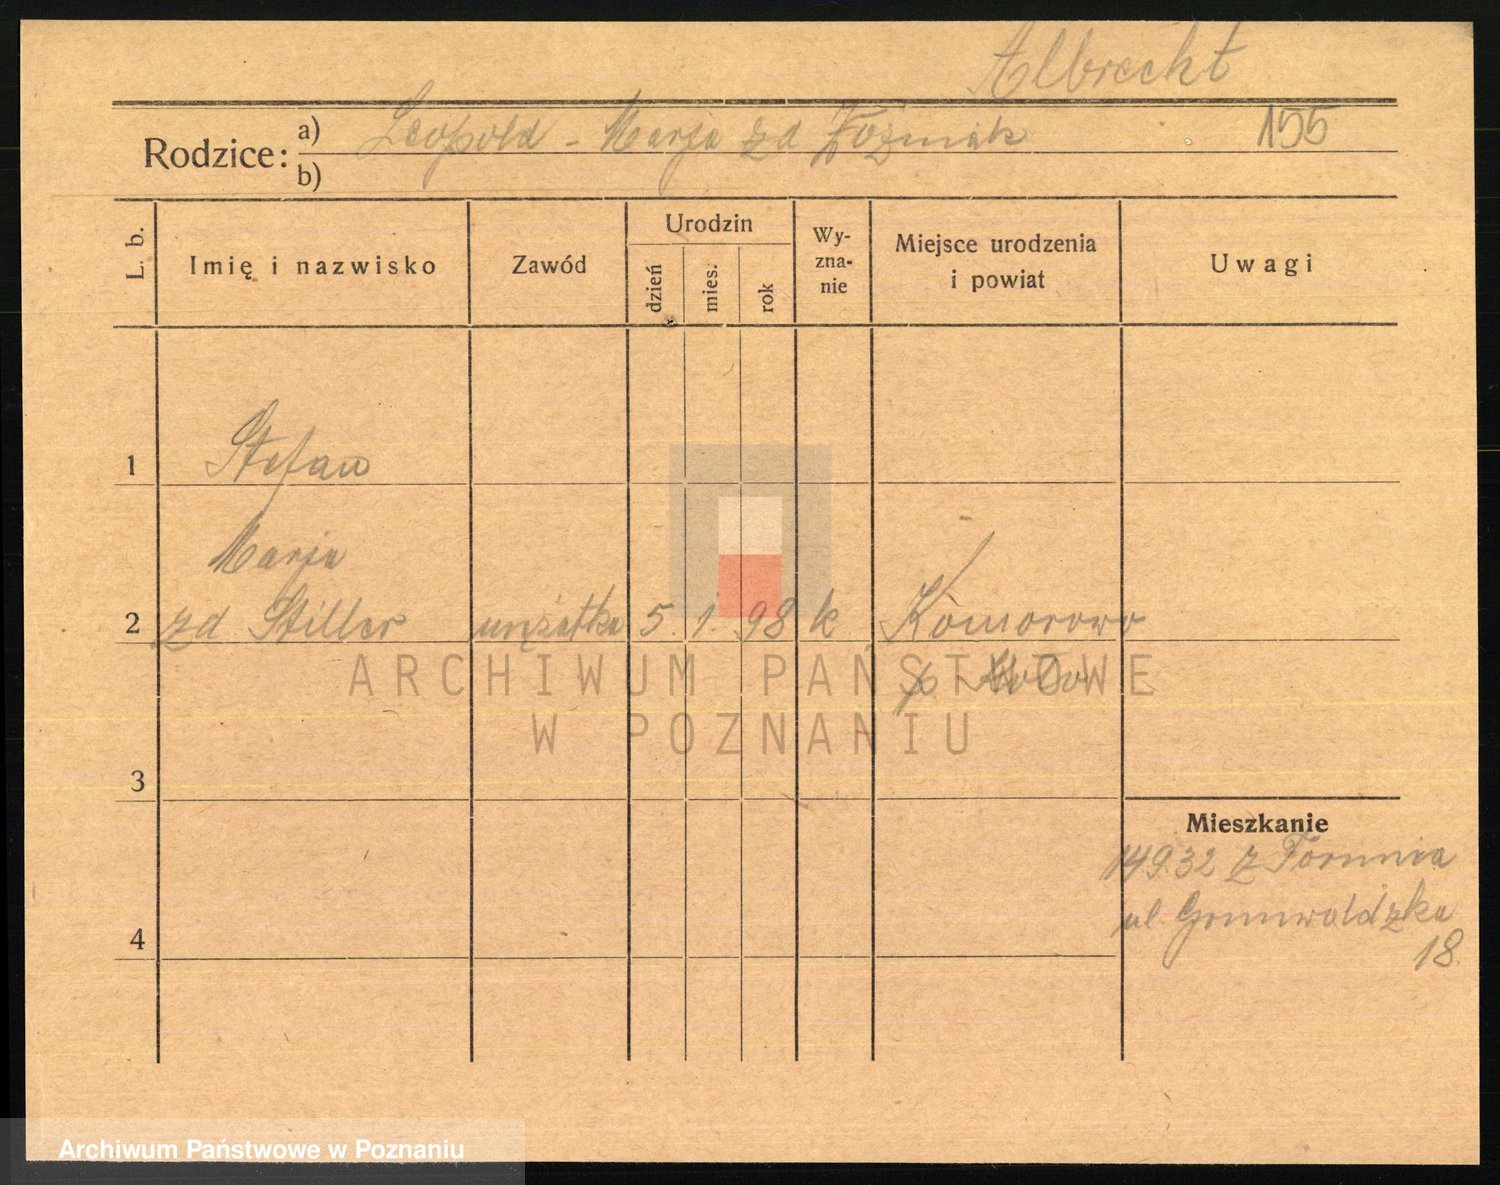 Albrecht
155
Rodzice: a) Leopold - Marja zd Woźniak
b)
L. b.
Imię i nazwisko
Zawód
Urodzin
dzień
mies.
rok
Wy-
zna-
nie
Miejsce urodzenia
i powiat
Uwagi
1 Stefan
Marja
2 zd Stiller urzętka 5. 1. 98 k Komorowo
p.
ARCHIWUM PAŃSTWOWE
W POZNANIU
3
Mieszkanie
14932 z Torunia
ul. Grunwaldzka
18.
4
Archiwum Państwowe w Poznaniu